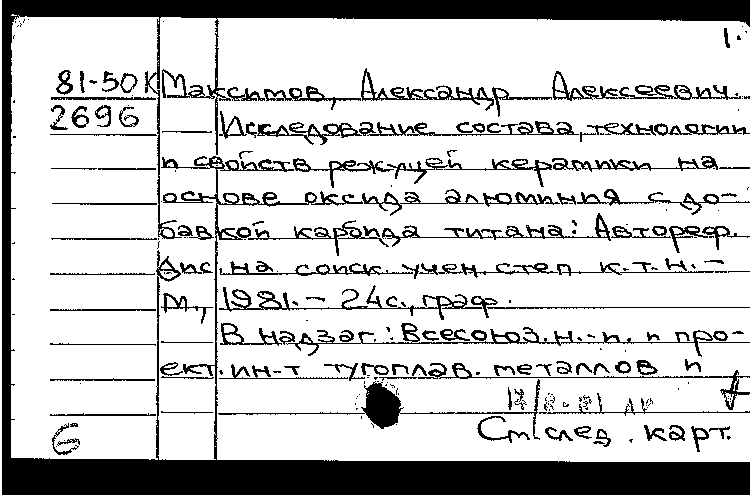 1.
81-50К Максимов, Александр Алексеевич.
2696 Исследование состава, технологии
и свойств режущей керамики на
основе оксида алюминия с до-
бавкой карбида титана: Автореф.
дис. на соиск. учен. степ. к.т.н. –
М., 1981. – 24с., граф.
В надзаг.: Всесоюз. н.-и. и про-
ект. ин-т тугоплав. металлов и
См. след. карт.
6